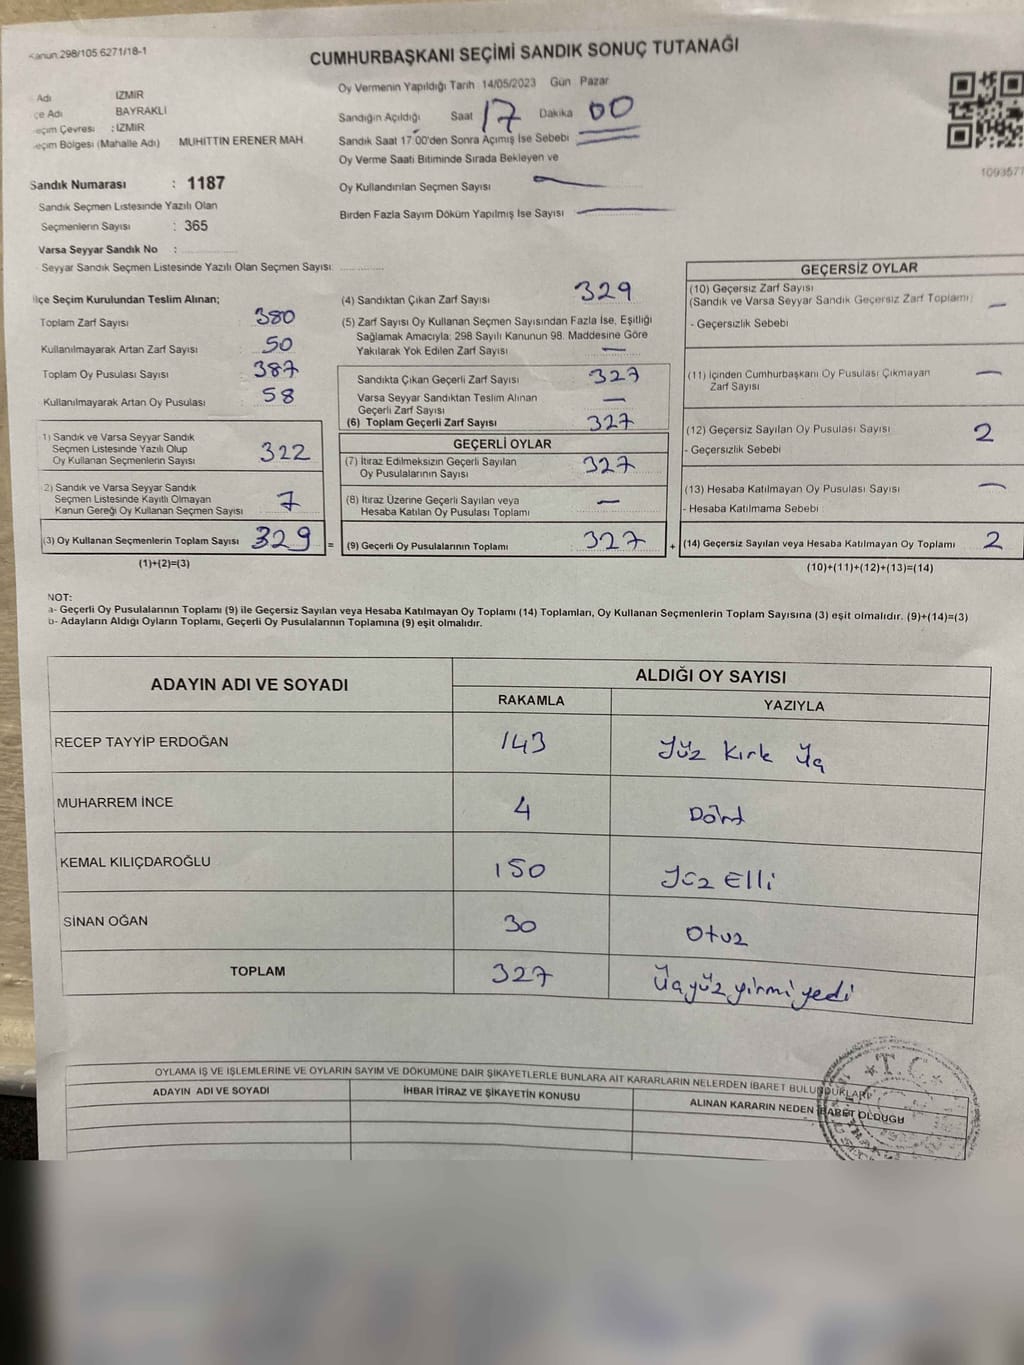 Kanun.298/105 6271/18-1
CUMHURBAŞKANI SEÇİMİ SANDIK SONUÇ TUTANAĞI
Adı İZMİR
çe Adı BAYRAKLI
eçim Çevresi : İZMİR
eçim Bölgesi (Mahalle Adı) MUHİTTİN ERENER MAH
Oy Vermenin Yapıldığı Tarih 14/05/2023 Gün Pazar
Sandığın Açıldığı Saat 17 Dakika 00
Sandık Saat 17:00'den Sonra Açımış İse Sebebi
Oy Verme Saati Bitiminde Sırada Bekleyen ve
Oy Kullandırılan Seçmen Sayısı —
Birden Fazla Sayım Döküm Yapılmış İse Sayısı —
1093577
Sandık Numarası : 1187
Sandık Seçmen Listesinde Yazılı Olan
Seçmenlerin Sayısı : 365
Varsa Seyyar Sandık No :
Seyyar Sandık Seçmen Listesinde Yazılı Olan Seçmen Sayısı:
İlçe Seçim Kurulundan Teslim Alınan;
Toplam Zarf Sayısı 380
Kullanılmayarak Artan Zarf Sayısı 50
Toplam Oy Pusulası Sayısı 387
Kullanılmayarak Artan Oy Pusulası 58
1) Sandık ve Varsa Seyyar Sandık
Seçmen Listesinde Yazılı Olup
Oy Kullanan Seçmenlerin Sayısı 322
2) Sandık ve Varsa Seyyar Sandık
Seçmen Listesinde Kayıtlı Olmayan
Kanun Gereği Oy Kullanan Seçmen Sayısı 7
(3) Oy Kullanan Seçmenlerin Toplam Sayısı 329 =
(1)+(2)=(3)
(4) Sandıktan Çıkan Zarf Sayısı 329
(5) Zarf Sayısı Oy Kullanan Seçmen Sayısından Fazla İse, Eşitliği
Sağlamak Amacıyla; 298 Sayılı Kanunun 98. Maddesine Göre
Yakılarak Yok Edilen Zarf Sayısı —
Sandıkta Çıkan Geçerli Zarf Sayısı 327
Varsa Seyyar Sandıktan Teslim Alınan
Geçerli Zarf Sayısı —
(6) Toplam Geçerli Zarf Sayısı 327
GEÇERLİ OYLAR
(7) İtiraz Edilmeksizin Geçerli Sayılan
Oy Pusulalarının Sayısı 327
(8) İtiraz Üzerine Geçerli Sayılan veya
Hesaba Katılan Oy Pusulası Toplamı —
(9) Geçerli Oy Pusulalarının Toplamı : 327 +
GEÇERSİZ OYLAR
(10) Geçersiz Zarf Sayısı
(Sandık ve Varsa Seyyar Sandık Geçersiz Zarf Toplamı) —
- Geçersizlik Sebebi
(11) İçinden Cumhurbaşkanı Oy Pusulası Çıkmayan
Zarf Sayısı —
(12) Geçersiz Sayılan Oy Pusulası Sayısı 2
- Geçersizlik Sebebi
(13) Hesaba Katılmayan Oy Pusulası Sayısı —
- Hesaba Katılmama Sebebi
(14) Geçersiz Sayılan veya Hesaba Katılmayan Oy Toplamı 2
(10)+(11)+(12)+(13)=(14)
NOT:
a- Geçerli Oy Pusulalarının Toplamı (9) ile Geçersiz Sayılan veya Hesaba Katılmayan Oy Toplamı (14) Toplamları, Oy Kullanan Seçmenlerin Toplam Sayısına (3) eşit olmalıdır. (9)+(14)=(3)
b- Adayların Aldığı Oyların Toplamı, Geçerli Oy Pusulalarının Toplamına (9) eşit olmalıdır.
ADAYIN ADI VE SOYADI ALDIĞI OY SAYISI
RAKAMLA YAZIYLA
RECEP TAYYİP ERDOĞAN 143 Yüz Kırk Üç
MUHARREM İNCE 4 Dört
KEMAL KILIÇDAROĞLU 150 Yüz Elli
SİNAN OĞAN 30 Otuz
TOPLAM 327 Üçyüz yirmi yedi
OYLAMA İŞ VE İŞLEMLERİNE VE OYLARIN SAYIM VE DÖKÜMÜNE DAİR ŞİKAYETLERLE BUNLARA AİT KARARLARIN NELERDEN İBARET BULUNDUKLARI
ADAYIN ADI VE SOYADI İHBAR İTİRAZ VE ŞİKAYETİN KONUSU ALINAN KARARIN NEDEN İBARET OLDUĞU
T.C.